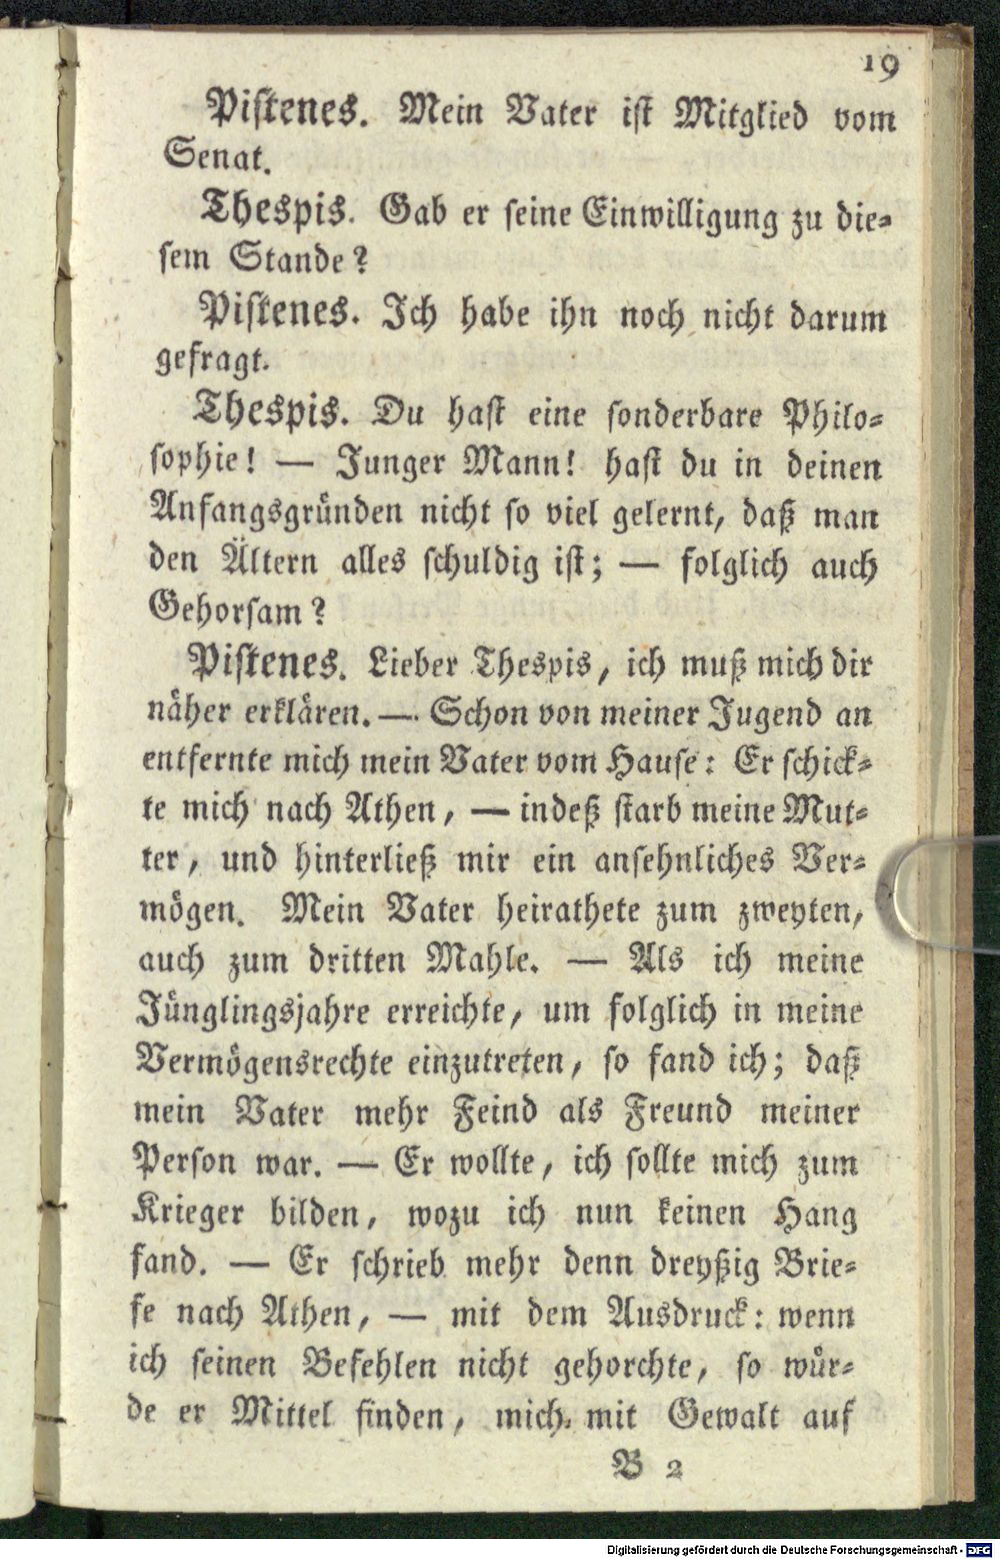 19
Piſtenes. Mein Vater iſt Mitglied vom
Senat.
Thespis. Gab er ſeine Einwilligung zu die⸗
ſem Stande?
Piſtenes. Ich habe ihn noch nicht darum
gefragt.
Thespis. Du haſt eine ſonderbare Philo⸗
ſophie! — Junger Mann! haſt du in deinen
Anfangsgründen nicht ſo viel gelernt, daß man
den Ältern alles ſchuldig iſt; — folglich auch
Gehorſam?
Piſtenes. Lieber Thespis, ich muß mich dir
näher erklären. — Schon von meiner Jugend an
entfernte mich mein Vater vom Hauſe: Er ſchick⸗
te mich nach Athen, — indeß ſtarb meine Mut⸗
ter, und hinterließ mir ein anſehnliches Ver⸗
mögen. Mein Vater heirathete zum zweyten,
auch zum dritten Mahle. — Als ich meine
Jünglingsjahre erreichte, um folglich in meine
Vermögensrechte einzutreten, ſo fand ich; daß
mein Vater mehr Feind als Freund meiner
Perſon war. — Er wollte, ich ſollte mich zum
Krieger bilden, wozu ich nun keinen Hang
fand. — Er ſchrieb mehr denn dreyßig Brie⸗
fe nach Athen, — mit dem Ausdruck: wenn
ich ſeinen Befehlen nicht gehorchte, ſo wür⸗
de er Mittel finden, mich mit Gewalt auf
B 2
Digitalisierung gefördert durch die Deutsche Forschungsgemeinschaft - DFG